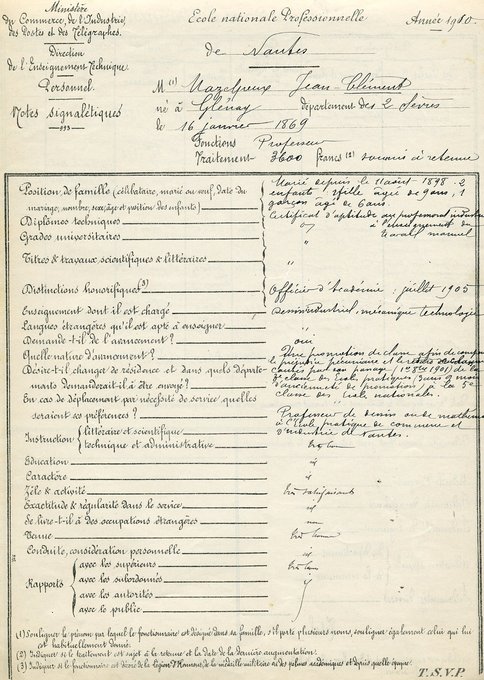 Ministère
du Commerce, de l'Industrie,
des Postes et des Télégraphes.
Direction
de l'Enseignement Technique.
Personnel.
Notes signalétiques
Ecole nationale Professionnelle
Année 1910.
de Nantes
M(1) Mazelpeux Jean-Clément
né à Glénay département des 2 Sèvres
le 16 janvier 1869
Fonctions Professeur
Traitement 3600 francs (2) soumis à retenue
Position de famille (célibataire, marié ou veuf, date du
mariage, nombre, sexe, âge et position des enfants)
Marié depuis le 11 août 1898 - 2
enfants 1 fille âgée de 9 ans, 1
garçon âgé de 6 ans.
Diplômes techniques
Certificat d'aptitude au professorat industriel
Grades universitaires
à l'enseignement du
travail manuel
Titres & travaux scientifiques & littéraires
"
Distinctions honorifiques (3)
Officier d'Académie : juillet 1905
Enseignement dont il est chargé
Dessin industriel, mécanique, technologie
Langues étrangères qu'il est apte à enseigner
"
Demande-t-il de l'avancement ?
oui
Quelle nature d'avancement ?
Une promotion de classe afin de
le préjudice pécuniaire et
Désire-t-il changer de résidence et dans quels départe-
ments demanderait-il à être envoyé ?
par son passage (1er 8bre 1901) de la
classe des écoles pratiques
d'ancienneté de promotion) à la 5e
classe des écoles nationales.
En cas de déplacement par nécessité de service, quelles
seraient ses préférences ?
Professeur de dessin ou de mathém
à l'école pratique de commerce et
d'industrie de Nantes.
Instruction { littéraire et scientifique
technique et administrative
très bonne
Education
id
Caractère
id
Zèle & activité
très satisfaisants
Exactitude & régularité dans le service
id
Se livre-t-il à des occupations étrangères
non
Tenue
très bonne
Conduite, considération personnelle
id
Rapports { avec les supérieurs
très bons
avec les subordonnés
avec les autorités
avec le public
(1) Souligner le prénom par lequel le fonctionnaire est désigné dans sa famille, s'il porte plusieurs noms, souligner également celui qui lui
est habituellement donné.
(2) Indiquer si le traitement est sujet à la retenue et la date de la dernière augmentation.
(3) Indiquer si le fonctionnaire est décoré de la légion d'Honneur, de la médaille militaire ou des palmes académiques et depuis quelle époque.
T.S.V.P.